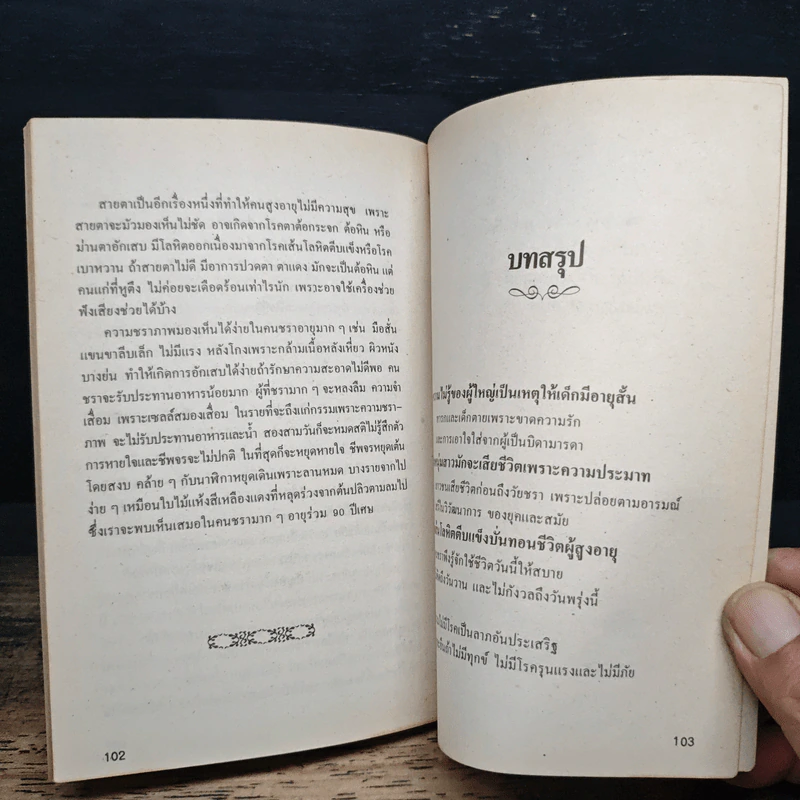 สายตาเป็นอีกเรื่องหนึ่งที่ทำให้คนสูงอายุไม่มีความสุข เพราะ
สายตาจะมัวมองเห็นไม่ชัด อาจเกิดจากโรคตาต้อกระจก ต้อหิน หรือ
ม่านตาอักเสบ มีโลหิตออกเนื่องมาจากโรคเส้นโลหิตตีบแข็งหรือโรค
เบาหวาน ถ้าสายตาไม่ดี มีอาการปวดตา ตาแดง มักจะเป็นต้อหิน แต่
คนแก่ที่หูตึง ไม่ค่อยจะเดือดร้อนเท่าไรนัก เพราะอาจใช้เครื่องช่วย
ฟังเสียงช่วยได้บ้าง
ความชราภาพมองเห็นได้ง่ายในคนชราอายุมาก ๆ เช่น มือสั่น
แขนขาลีบเล็ก ไม่มีแรง หลังโกงเพราะกล้ามเนื้อหลังเหี่ยว ผิวหนัง
บางย่น ทำให้เกิดการอักเสบได้ง่ายถ้ารักษาความสะอาดไม่ดีพอ คน
ชราจะรับประทานอาหารน้อยมาก ผู้ที่ชรามาก ๆ จะหลงลืม ความจำ
เสื่อม เพราะเซลล์สมองเสื่อม ในรายที่จะถึงแก่กรรมเพราะความชรา-
ภาพ จะไม่รับประทานอาหารและน้ำ สองสามวันก็จะหมดสติไม่รู้สึกตัว
การหายใจและชีพจรจะไม่ปกติ ในที่สุดก็จะหยุดหายใจ ชีพจรหยุดเต้น
โดยสงบ คล้าย ๆ กับนาฬิกาหยุดเดินเพราะลานหมด บางรายจากไป
ง่าย ๆ เหมือนใบไม้แห้งสีเหลืองแดงที่หลุดร่วงจากต้นปลิวตามลมไป
ซึ่งเราจะพบเห็นเสมอในคนชรามาก ๆ อายุร่วม 90 ปีเศษ
102
บทสรุป
ไม่รู้ของผู้ใหญ่เป็นเหตุให้เด็กมีอายุสั้น
และเด็กตายเพราะขาดความรัก
และการเอาใจใส่จากผู้เป็นบิดามารดา
หนุ่มสาวมักจะเสียชีวิตเพราะความประมาท
เสียชีวิตก่อนถึงวัยชรา เพราะปล่อยตามอารมณ์
วิวัฒนาการ ของยุคและสมัย
โลหิตตีบแข็งบั่นทอนชีวิตผู้สูงอายุ
พึงรู้จักใช้ชีวิตวันนี้ให้สบาย
ถึงวันวาน และไม่กังวลถึงวันพรุ่งนี้
ไม่มีโรคเป็นลาภอันประเสริฐ
ถ้าไม่มีทุกข์ ไม่มีโรครุนแรงและไม่มีภัย
103